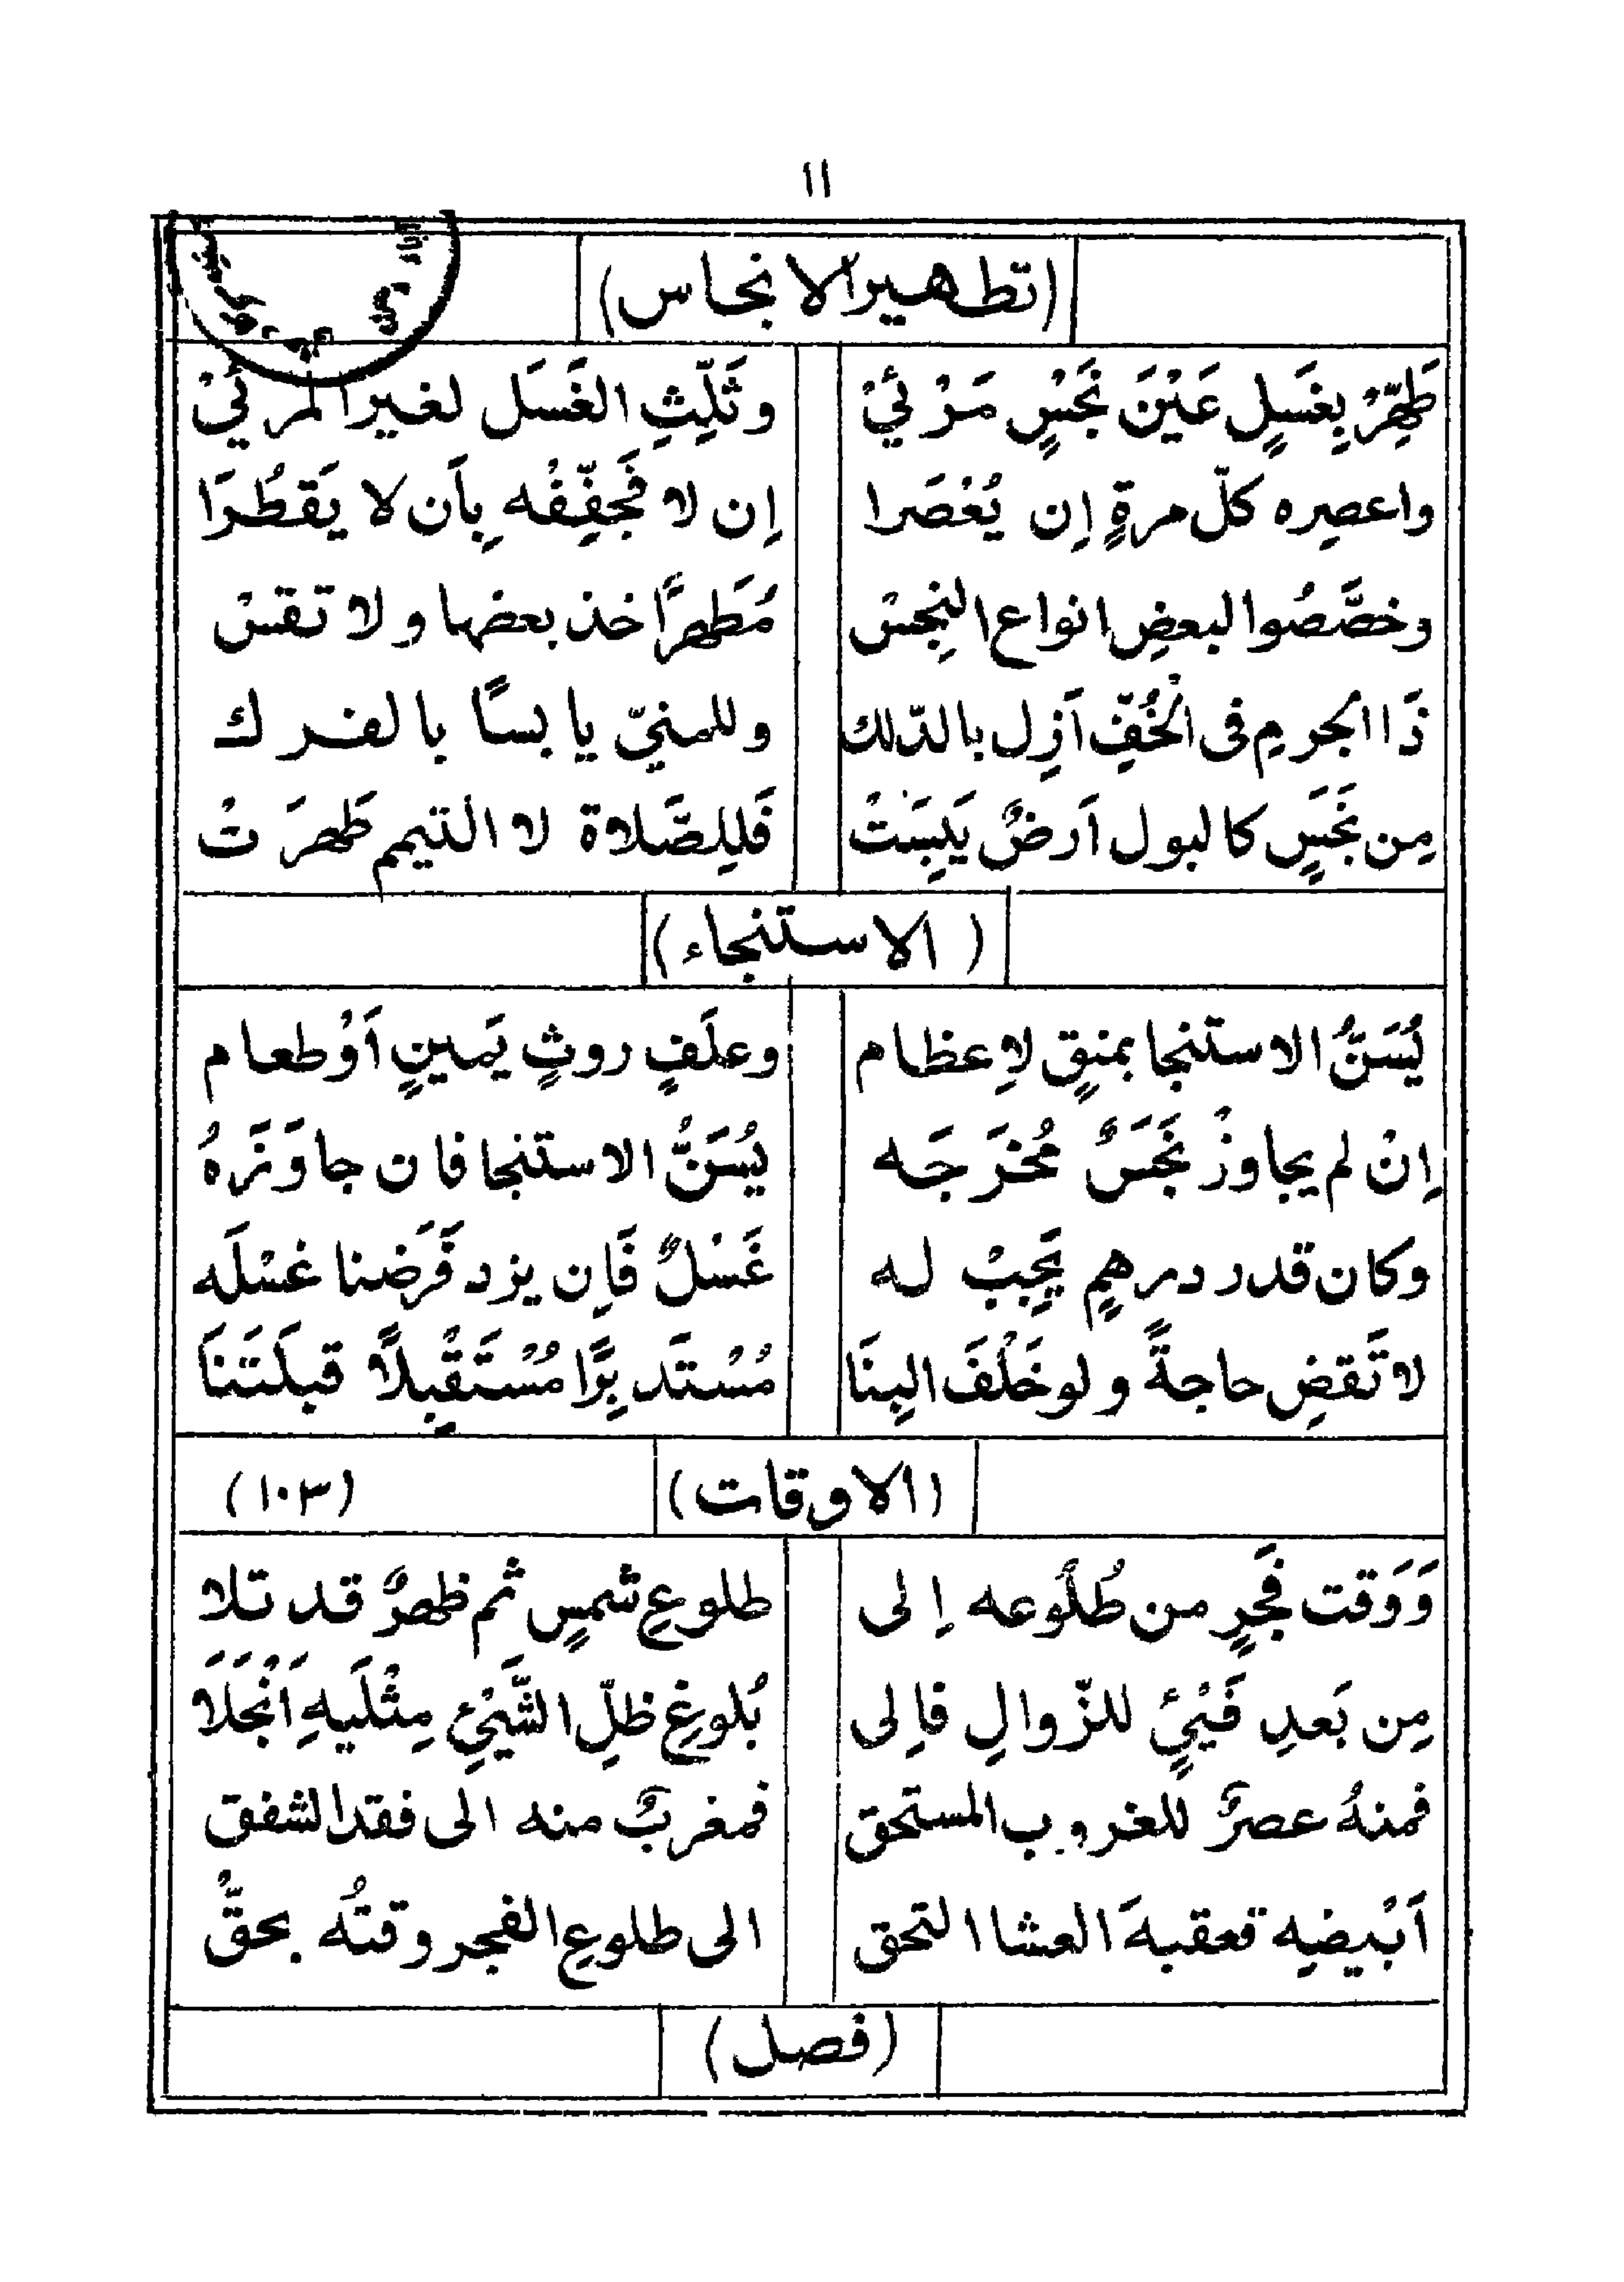 ١١
(تطهير الانجاس)
طَهِّرْ بِغَسَلٍ عَيْنَ نَجْسٍ مَرْئيْ وثَلِّثِ الغَسَل لغير المَرئيْ
واعصِره كلّ مرةٍ إن يُعْصَرا إن لا فَجفِّفْه بِأَن لا يَقطُرَا
وخصَّصُوا لبعضِ انواع النجِسْ مُطَهِرًا خذ بعضها ولا تقسْ
ذَا الجرمِ فى الخُفِّ اَزِل بالدّلك وللمنيّ يابسًا بالفرك
مِن نَجَسٍ كالبول اَرضٌ يَبِسَتْ فَلِلصَّلاة لا التيمم طَهرَتْ
(الاستنجاء)
يُسَنُّ الاستنجا بمنقٍ لاِعظام وعلَفٍ روثٍ يَمينٍ اَوْطعام
إنْ لم يجاوزْ نَجَسٌ مُخرَجَه يُسَنُّ الاستنجا فان جاوَزَهُ
وكان قدر درهمٍ يَجِبْ له غَسْلٌ فَاِن يزد فَرَضنا غسْلَه
لا تَقضِ حاجةً ولو خَلْفَ البِنَا مُسْتَدبِرًا مُسْتَقْبِلًا قبلَتَنَا
(الاوقات) (١٠٣)
وَوَقت فَجرٍ من طُلُوعه اِلى طلوعِ شمسٍ ثم ظهرٌ قد تلا
مِن بَعدِ فَيْئٍ للزّوالِ فاِلى بُلوغِ ظلِّ الشَّيْئِ مِثْلَيهِ اَنْجَلَا
فمنهُ عصرٌ للغروب المستحق فمغربٌ منه الى فقد الشفق
اَبْيضِه فعقبهَ العشا التحق الى طلوعِ الفجر وقتُه بحقٍّ
(فصل)